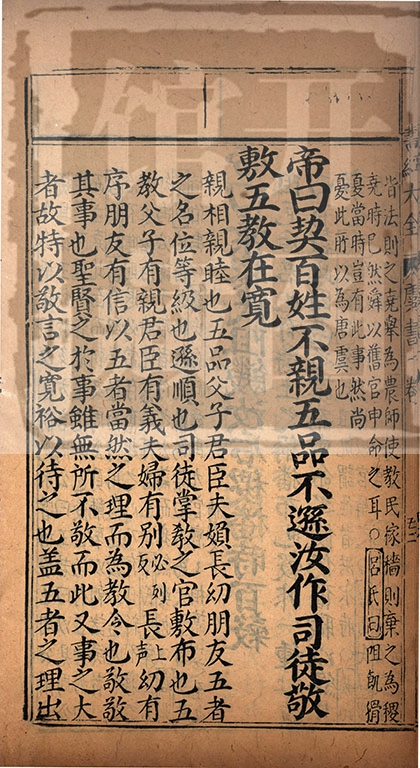 皆法則之堯舉為農師使教民稼穡則棄之為稷
堯時已然舜以舊官申命之耳○呂氏曰阻飢猾
夏當時豈有此事然尚
憂此所以為唐虞也
帝曰契百姓不親五品不遜汝作司徒敬
敷五教在寬
親相親睦也五品父子君臣夫婦長幼朋友五者
之名位等級也遜順也司徒掌教之官敷布也五
教父子有親君臣有義夫婦有别必列反長上聲幼有
序朋友有信以五者當然之理而為教令也敬敬
其事也聖賢之於事雖無所不敬而此又事之大
者故特以敬言之寬裕以待之也盖五者之理出